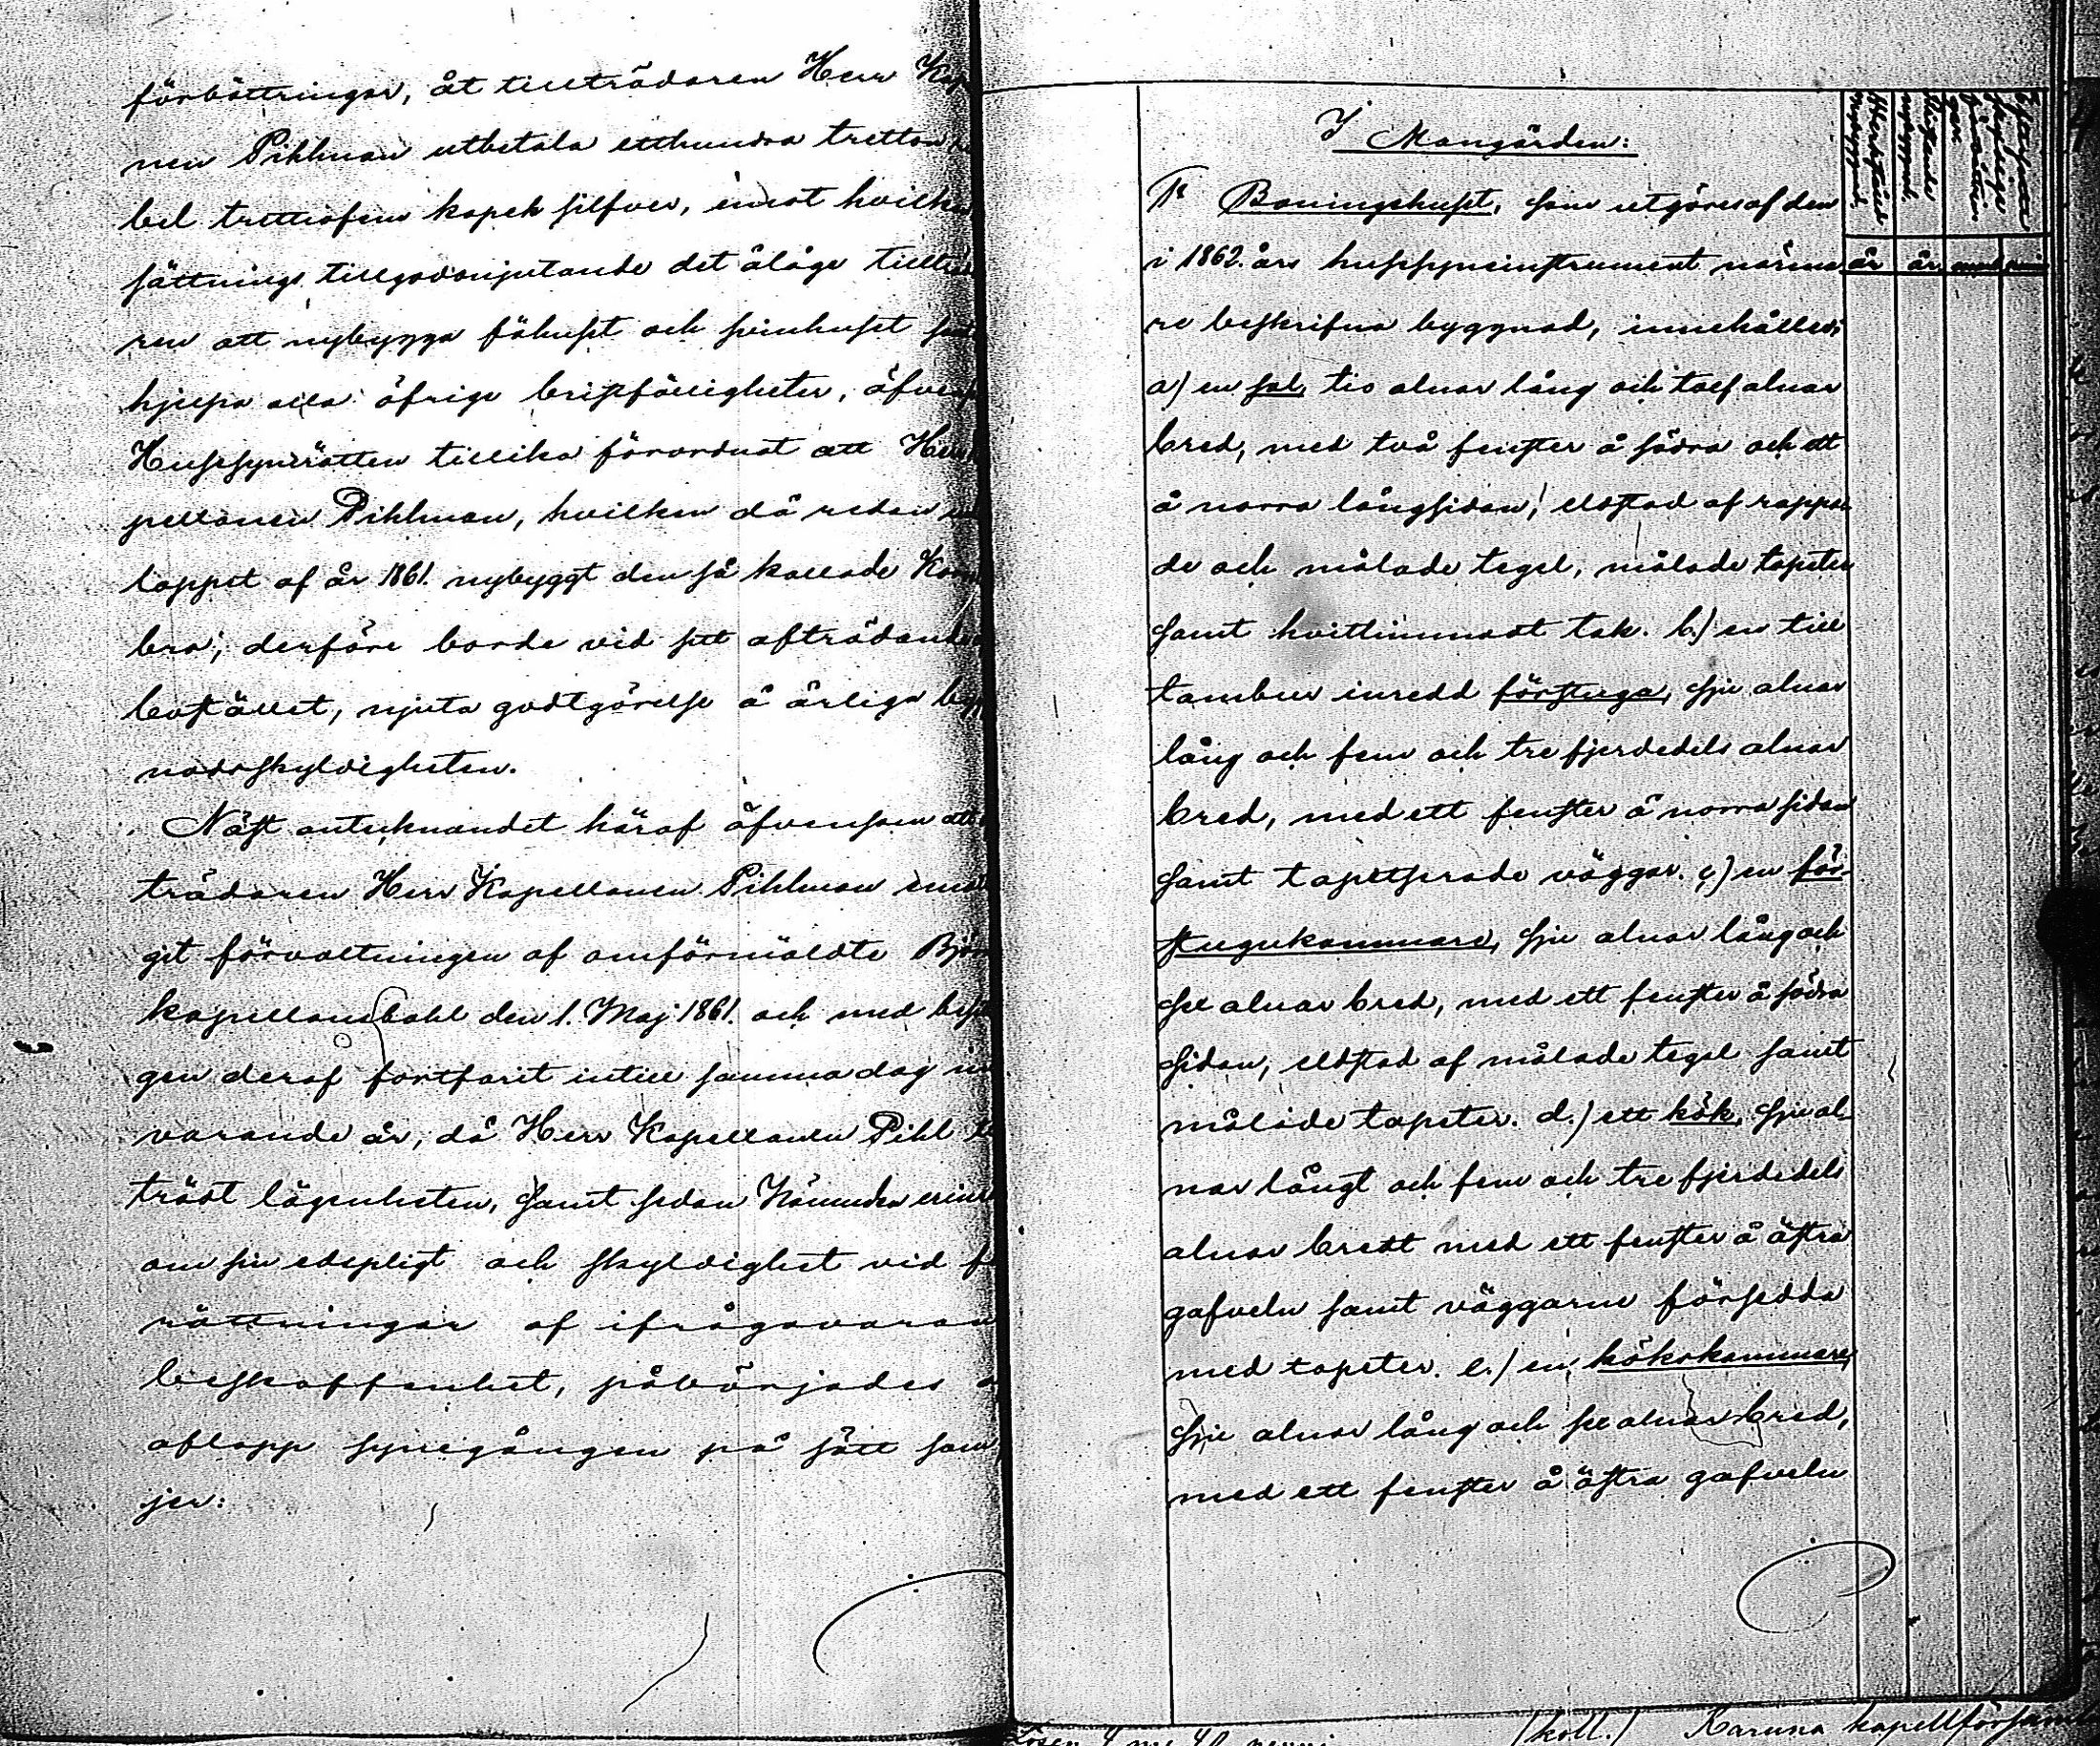 förbättringar, åt tillträdaren Herr Kap
nen Pihlman utbetala etthundra tretton
bel trettiofem kopek silfver, emot hvilken
sättnings tillgodonjutande det ålåge tillträ
ren att nybygga fähuset och svinhuset sam
hjelpa alla öfriga bristfälligheter, äfvens
Hussynsrätten tillika förordnat att Herr
pellanen Pihlman, hvilken då redan
loppet af år 1861. nybyggt den så kallade Korn
bra, derföre borde vid sitt afträdande
bostället, njuta godtgörelse å årliga byg
nadsskyldigheten.
Näst antecknandet häraf äfvensom att
trädaren Herr Kapellanen Pihlman emot
git förvaltningen af omförmäldte Björ
kapellansbohl den 1. Maj 1861. och med besitt
gen deraf fortfarit intill samma dag in
varande år, då Herr Kapellanen Pihl til
trädt lägenheten, samt sedan Nämnden erinr
om sin edspligt och skyldighet vid fö
rättningar af ifrågavaran
beskaffenhet, påbörjades
aflopp synegången på sätt som
jer:
I Mangården:
Boningshuset, som utgöres af den
i 1862. års hussynsinstrument närma
re beskrifna byggnad, innehåller;
a) en sal, tio alnar lång och tolf alnar
bred, med två fenster å södra och ett
å norra långsidan, eldstad af rappa
de och målade tegel, målade tapeter
samt hvitlimmadt tak. b.) en till
tambur inredd förstuga, sju alnar
lång och fem och tre fjerdedels alnar
bred, med ett fenster å norra sidan
samt tapetserade väggar. c) en för-
stugukammare, sju alnar lång och
sex alnar bred, med ett fenster å södra
sidan, eldstad af målade tegel samt
målade tapeter. d.) ett kök, sju al-
nar långt och fem och tre fjerdedels
alnar bredt med ett fenster å östra
gafveln samt väggarne försedda
med tapeter. e.) en kökskammare,
sju alnar lång och sex alnar bred,
med ett fenster å östra gafveln
år år
(koll.) Karuna kapellförsaml